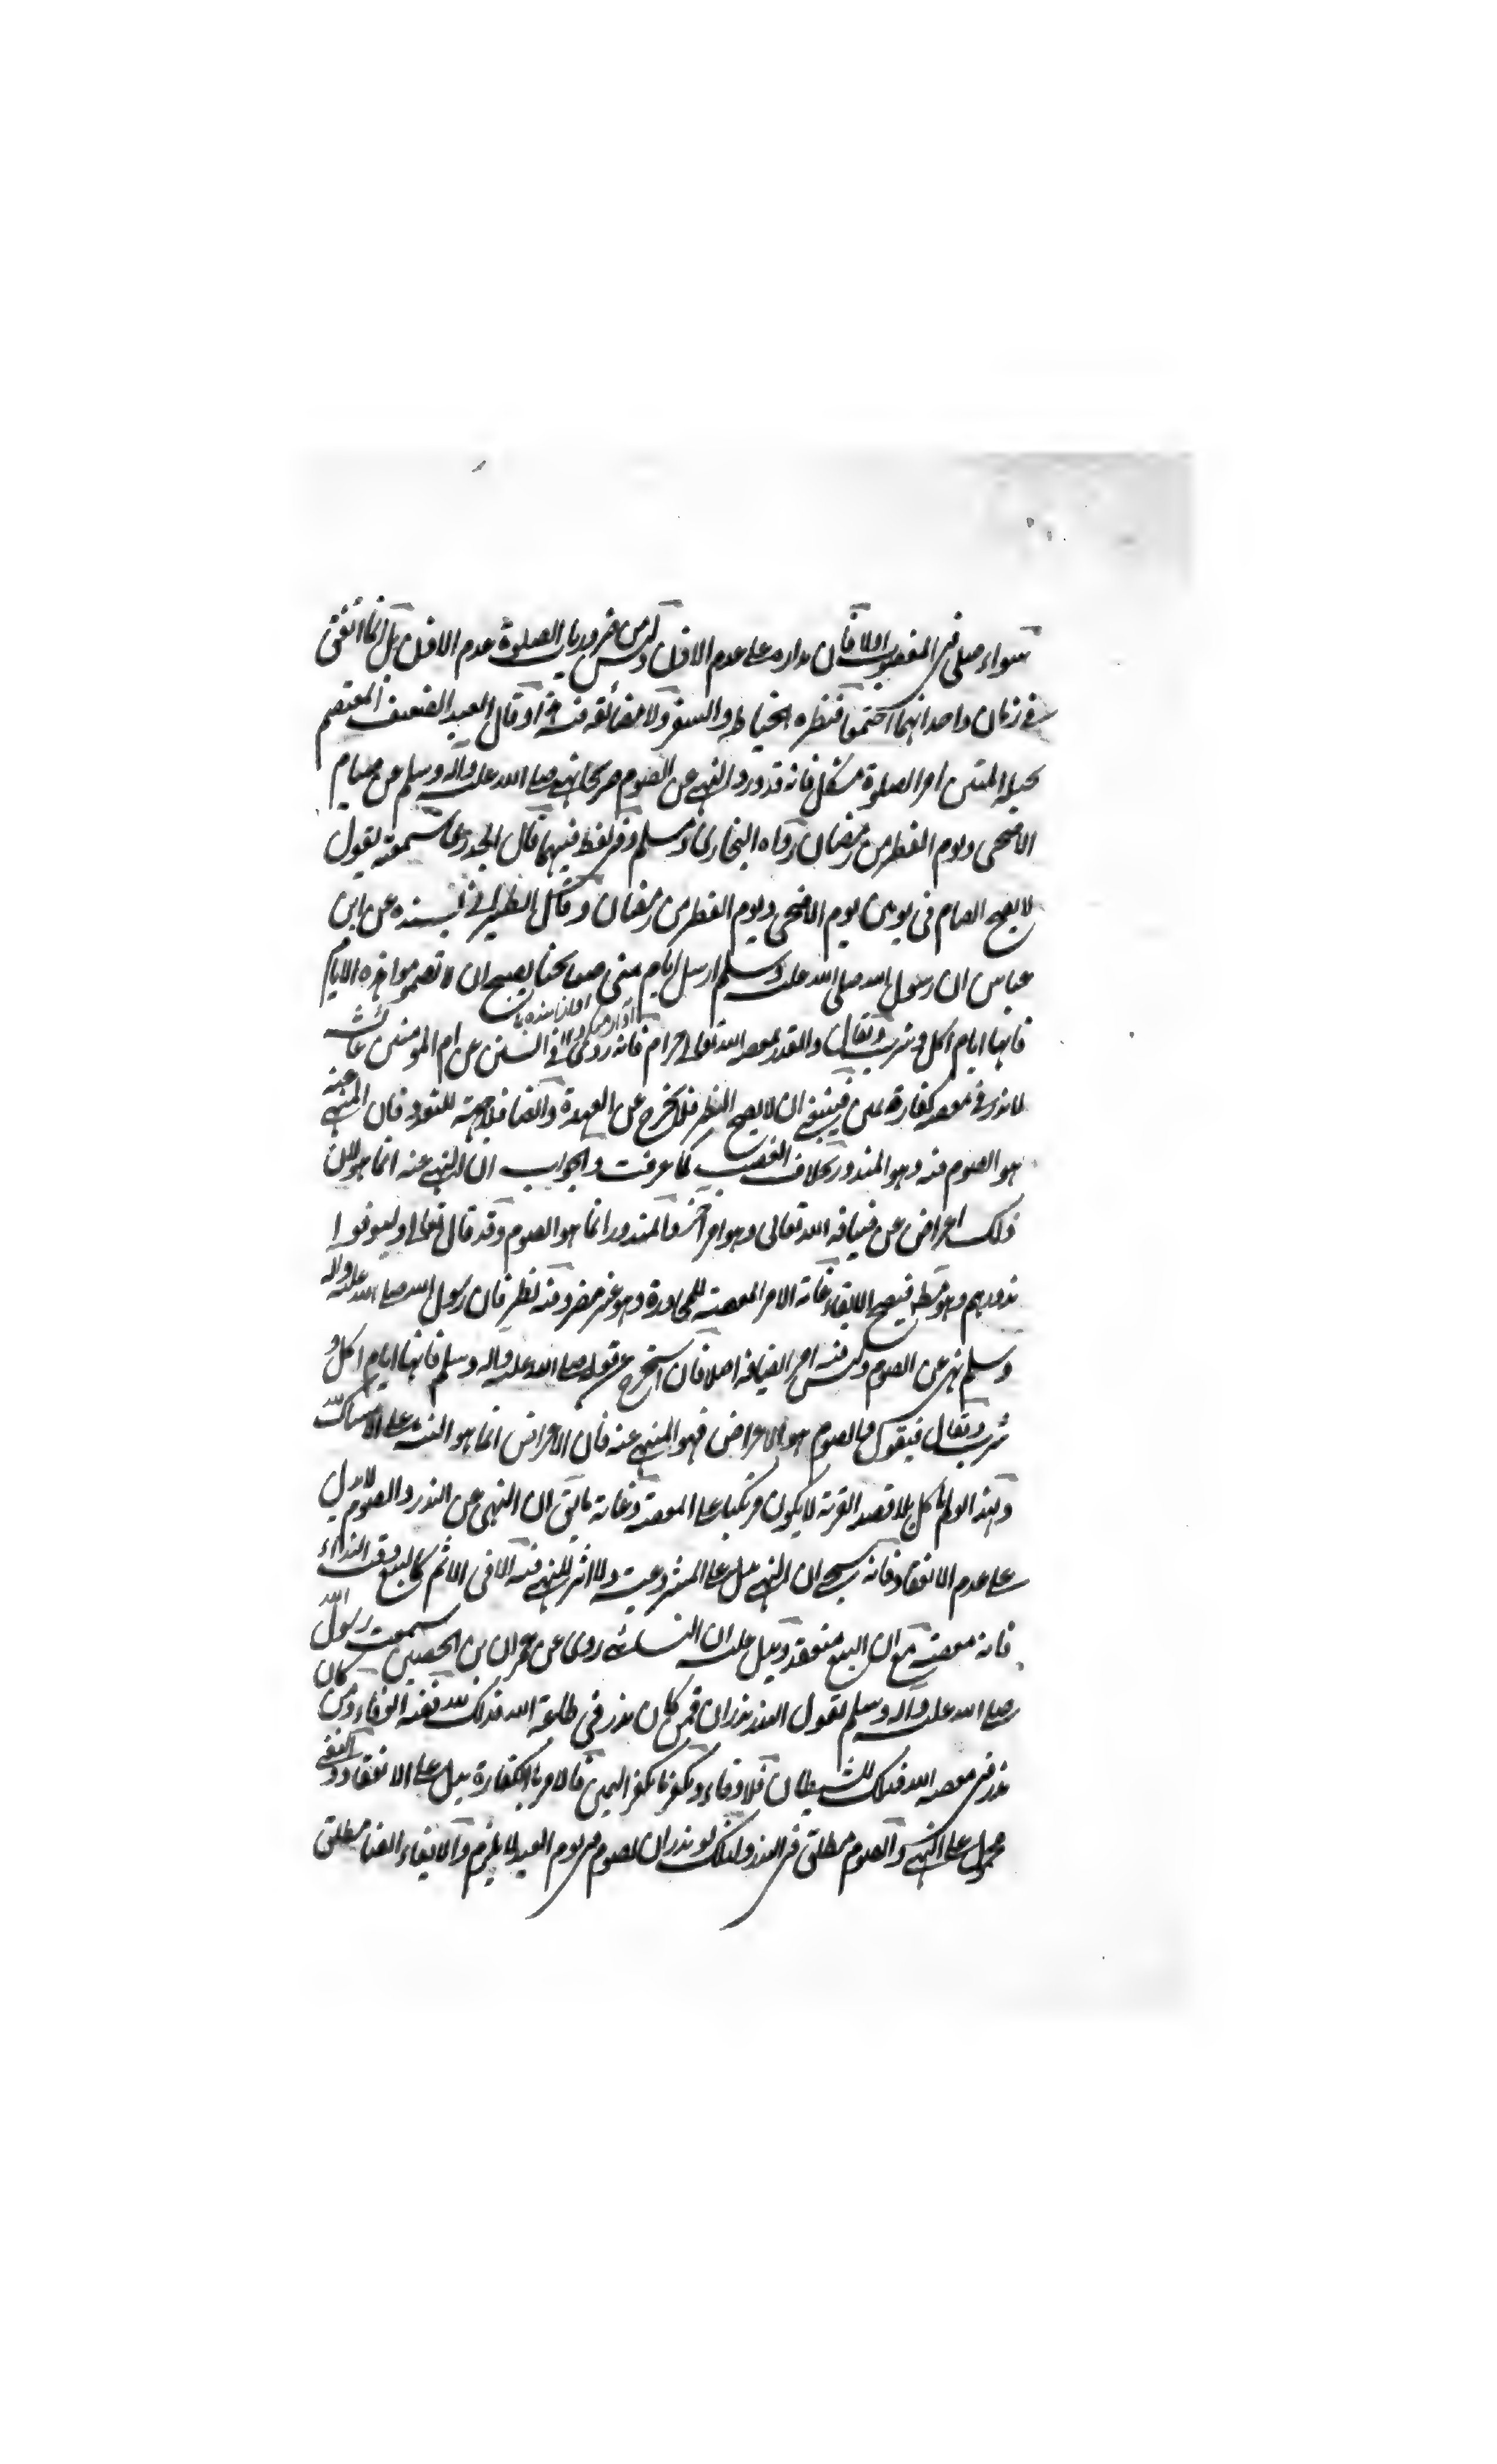 سواء صلى فى المغصوب اولا فان مداره على عدم الاذن وليس من ضروريات الصلوة عدم الاذن بل انما اتفق
فى زمان واحد انهما اجتمعا فنظره الخياطة والسفر ولا مضائقة فيه قال العبد الضعيف المعتصم
بحبله المتين امر الصلوة مشكل فانه قد ورد النهى عن الصوم صريحا نهى صلى الله عليه واله وسلم عن صيام
الاضحى ويوم الفطر من رمضان رواه البخارى ومسلم وفى لفظ فيهما قال الخدرى سمعته يقول
لا يصح الصيام فى يومين يوم الاضحى ويوم الفطر من رمضان وقال الطبرانى بسنده عن ابن
عباس ان رسول الله صلى الله عليه وسلم ارسل ايام منى صائحا يصيح ان لا تصوموا هذه الايام
فانها ايام اكل وشرب وبعال والنذر بمعصية الله تعالى حرام فانه روى فى السنن عن ام المؤمنين عائشة
لا نذر فى معصية وكفارته يمين فينبغى ان لا يصح النذر فلا يخرج عن العهدة وايضا فلا جهة للتعدد فان المنهى عنه
هو الصوم فيه وهو المنذور بخلاف الغصب كما عرفت والجواب ان النهى عنه انما هو لان
ذلك اعراض عن ضيافة الله تعالى وهو امر اخر والمنذور انما هو الصوم وقد قال تعالى وليوفوا
نذورهم وهو مطلق فيصح الايفاء غاية الامر المعصية للمجاورة وهو غير مضر وفيه نظر فان رسول الله صلى الله عليه واله
وسلم نهى عن الصوم وليس فيه امر الضيافة اصلا فان استخرج عن قوله صلى الله عليه واله وسلم فانها ايام اكل و
شرب وبعال فيقول فالصوم هو الاعراض فهو المنهى عنه فان الاعراض انما هو النية على الامساك لله
ولهذا لو لم ياكل بلا قصد القربة لا يكون مرتكبا على المعصية وغاية ما يق ان النهى عن النذر والصوم لا يدل
على عدم الانعقاد فانه سيجئ ان النهى يدل على المشروعية ولا اثر للنهى فيه الا فى الاثم كالبيع وقت النداء
فانه معصية مع ان البيع منعقد ويدل عليه ان النسائى روى عن عمران بن الحصين سمعت رسول الله
صلى الله عليه واله وسلم يقول النذر نذران فمن كان نذر فى طاعة الله فذلك لله ففيه الوفاء ومن كان
نذر فى معصية الله فذلك للشيطان فلا وفاء ويكفره ما يكفر اليمين فالامر بالكفارة يدل على الانعقاد والنفى
محمول على النهى والصوم مطلق فى النذر ولذلك لو نذر ان يصوم فى يوم العيد لا يلزم والايفاء ايضا مطلق